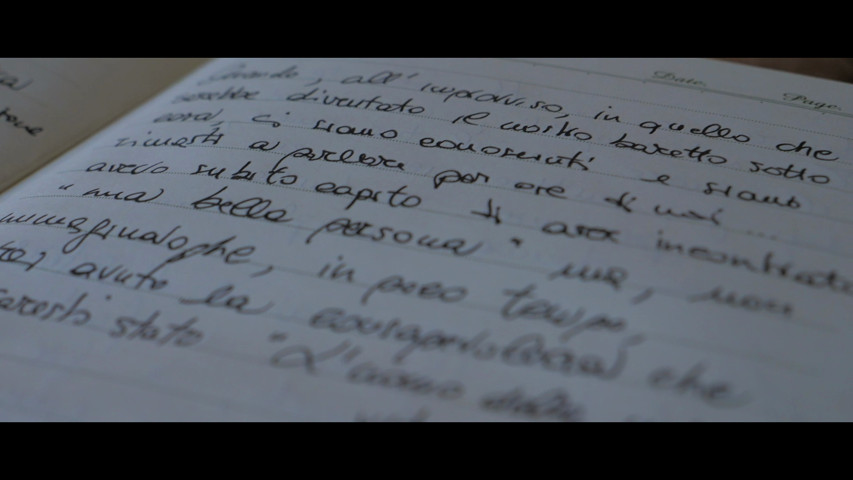 Date.
Page.
Quando, all'improvviso, in quello che
sarebbe diventato il nostro baretto sotto
casa, ci siamo conosciuti e siamo
rimasti a parlare per ore di noi ...
avevo subito capito di aver incontrato
"una bella persona" ma, non
immaginando che, in poco tempo,
avuto la consapevolezza che
saresti stato "L'uomo della